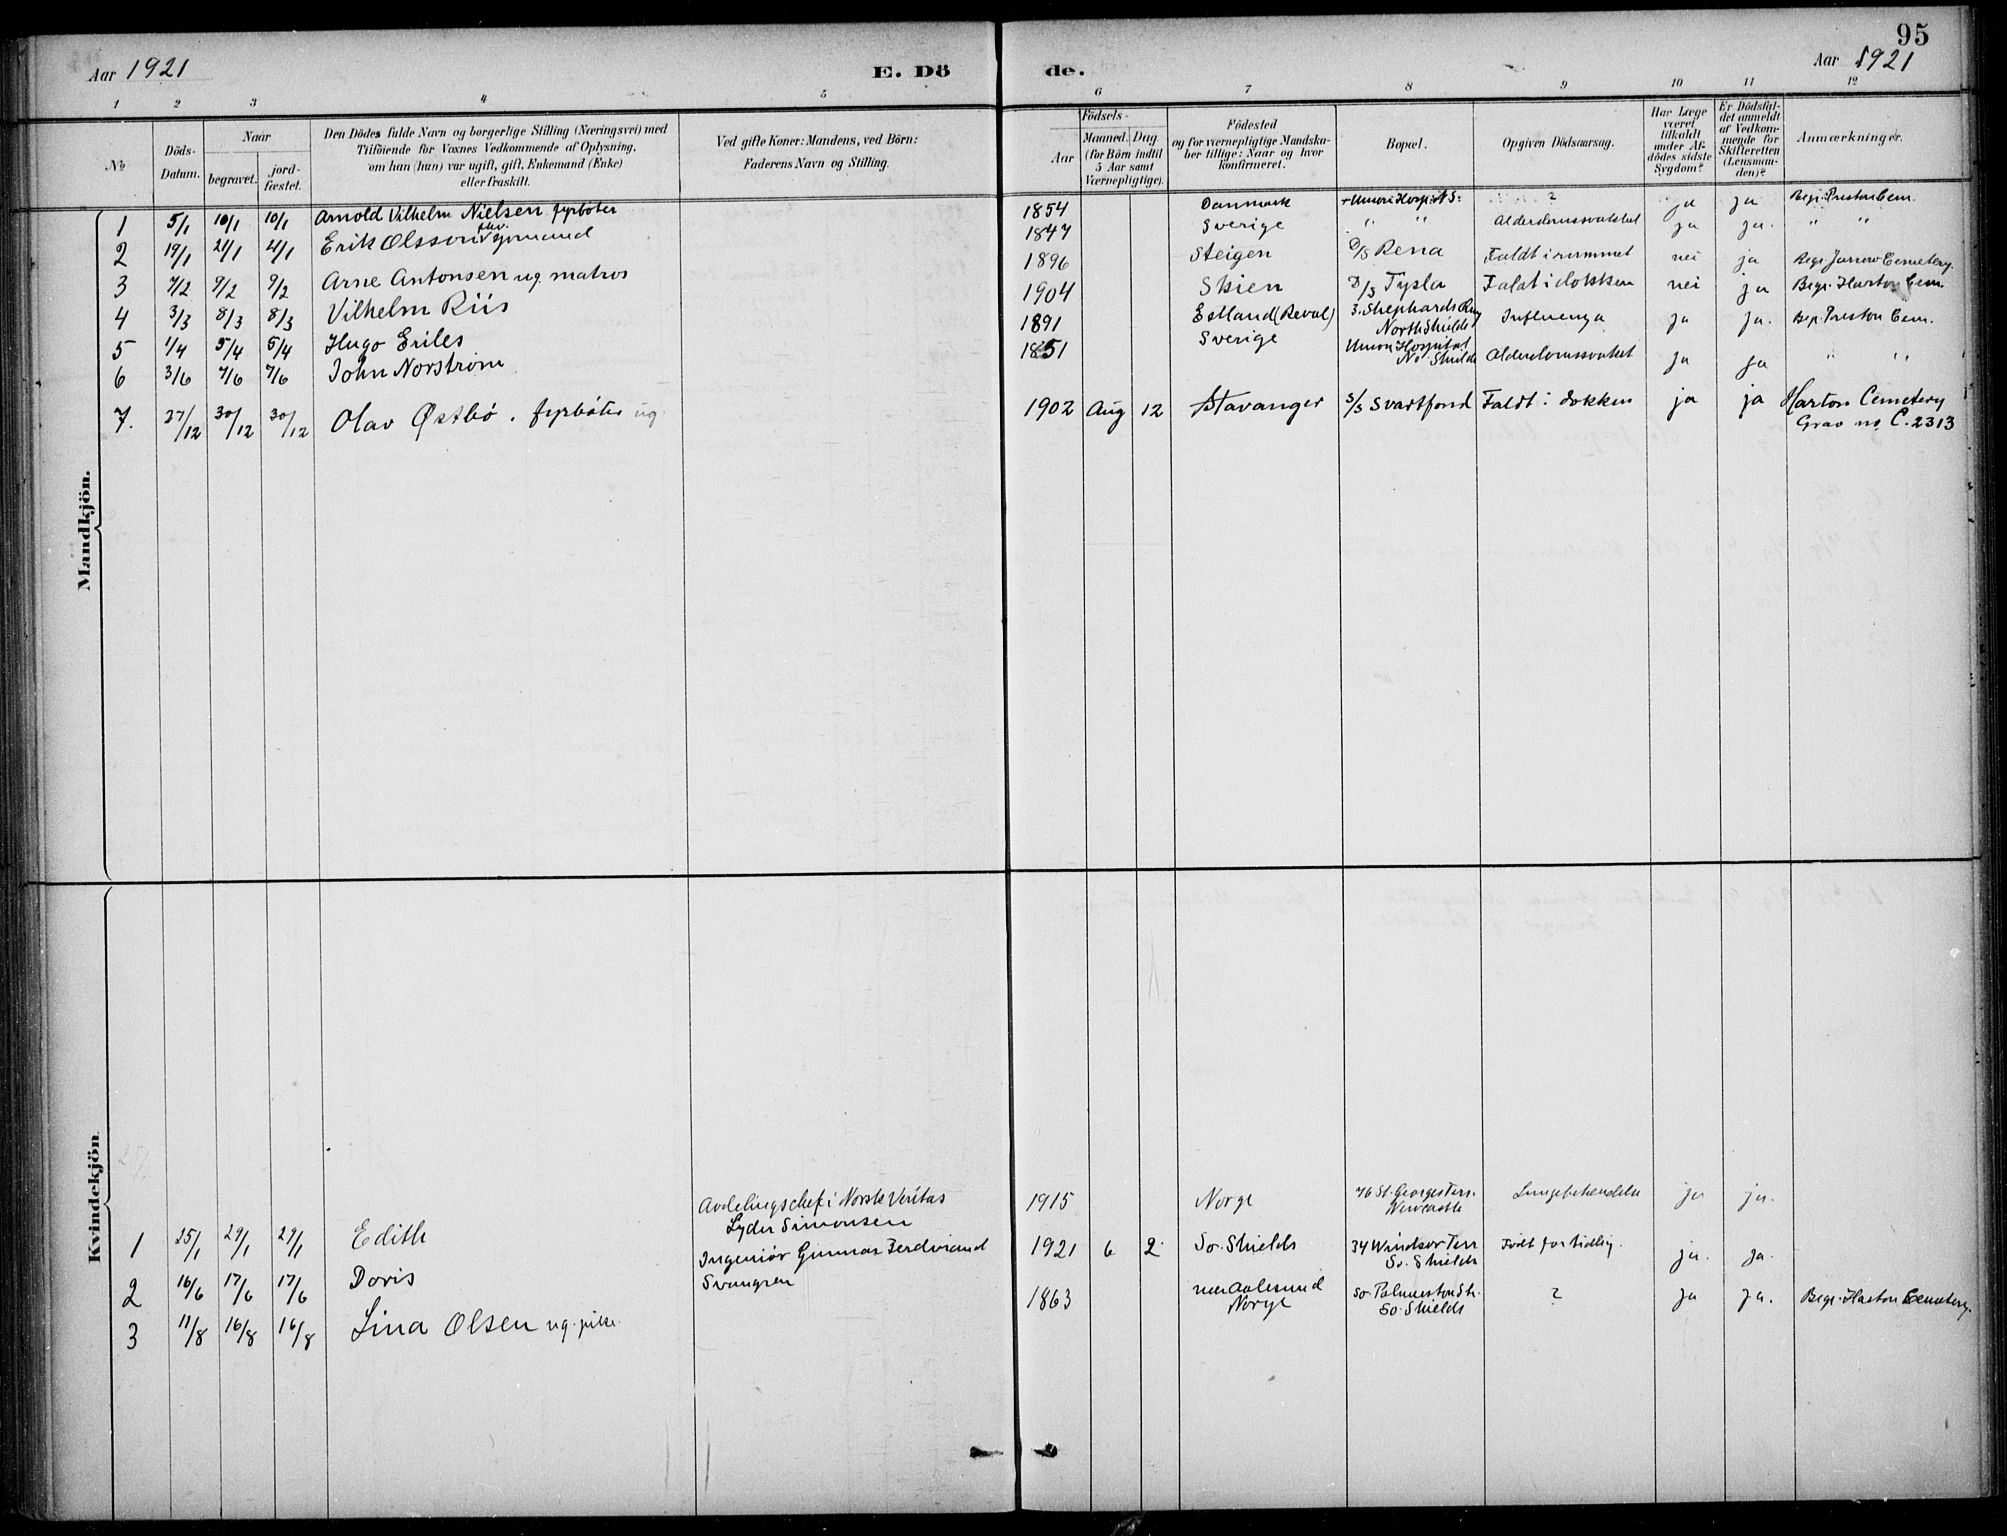 95
Aar 1921
E. Dö
de.
Aar 1921
1 2 3 4 5 6 7 8 9 10 11 12
No
Döds-Datum.
Naar
begravet.
jord-fæstet.
Den Dödes fulde Navn og borgerlige Stilling (Næringsvei) med
Tilföiende for Voxnes Vedkommende af Oplysning,
om han (hun) var ugift, gift, Enkemand (Enke)
eller fraskilt.
Ved gifte Koner: Mandens, ved Börn:
Faderens Navn og Stilling.
Födsels-
Aar
Maaned. Dag
(for Börn indtil
5 Aar samt
Værnepligtige).
Födested
og for værnepligtige Mandska-
ber tillige: Naar og hvor
konfirmeret.
Bopæl.
Opgiven Dödsaarsag.
Har Læge
været
tilkaldt
under Af-
dödes sidste
Sygdom?
Er Dödsfal-
det anmeldt
af Vedkom-
mende for
Skifteretten
(Lensman-
den)?
Anmærkninger.
Mandkjön.
1 5/1 10/1 10/1 Arnold Vilhelm Nielsen fyrböter 1854 Danmark Union Hosp. N.S. ? ja ja Begr. Preston Cem.
2 19/1 21/1 21/1 Erik Olsson fhv. sjömand 1847 Sverige " " Alderdomssvakhet ja ja. " "
3 7/2 9/2 9/2 Arne Antonsen ug. matros 1896 Steigen D/S Rena Faldt i rummet nei ja Begr. Jarrow Cemetery.
4 3/3 8/3 8/3 Vilhelm Riis 1904 Skien D/S Tysla Faldt i dokken nei ja Begr. Harton Cem.
5 1/4 5/4 5/4 Hugo Eriles 1891 Estland (Reval) 3. Shephards Quay
North Shields Influenza ja ja. Begr. Preston Cem.
6 3/6 7/6 7/6 John Norström 1851 Sverige Union Hospital
No. Shields Alderdomssvakhet ja ja " "
7. 27/12 30/12 30/12 Olav Østbö. fyrböter ug. 1902 Aug 12 Stavanger S/S Svartfond Faldt i dokken ja ja Harton Cemetery
Grav no. C. 2313
Kvindekjön
1 25/1 29/1 29/1 Edith Avdelingschef i Norsk Veritas
Lyder Simonsen 1915 Norge 76 St. Georges Terr.
Newcastle Lungebetændelse ja ja.
2 16/6 17/6 17/6 Doris Ingeniör Gunnar Ferdinand
Svangren 1921 6 2 So. Shields 34 Windsor Terr
So. Shields Födt for tidlig. ja. ja.
3 11/8 16/8 16/8 Lina Olsen ug. pike. 1863 nær Aalesund
Norge 50. Palmerston Str.
So. Shields ? ja ja. Begr. Harton Cemetery.